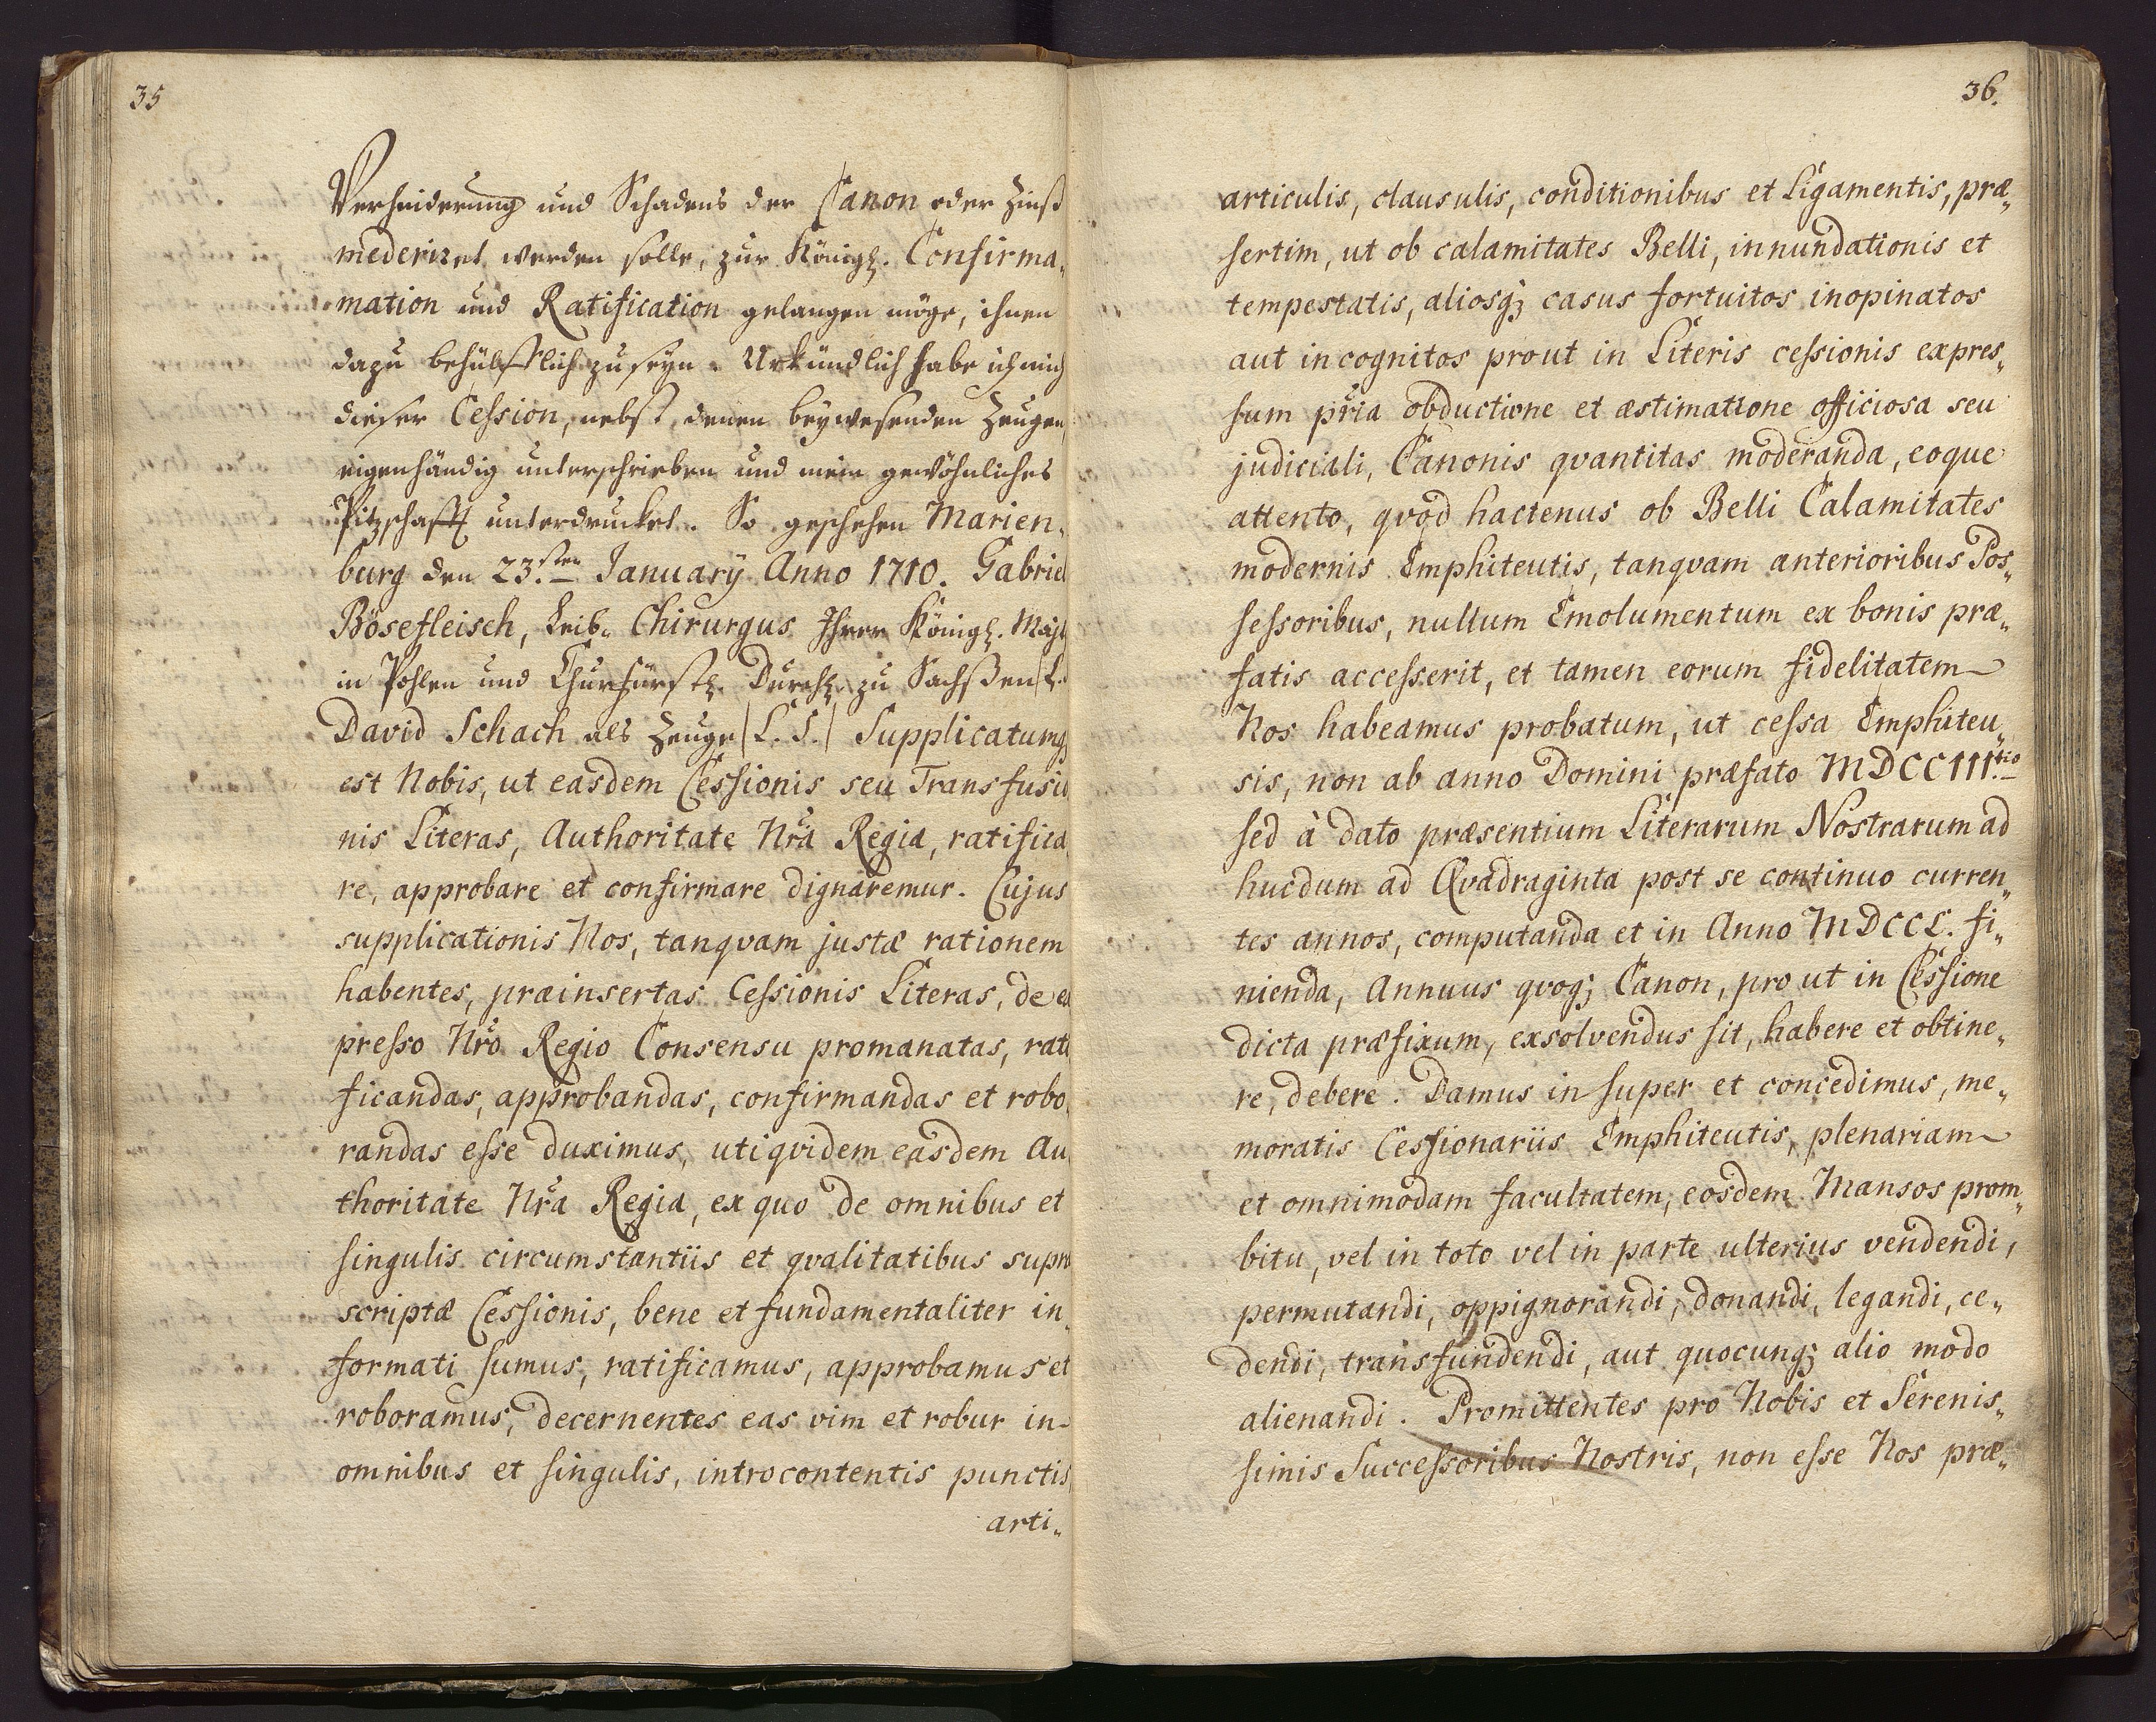 35
Verhinderung und Schadens der Canon oder Zinß
mederiret werden solle, zur Königl. Confirma„
mation und Ratification gelangen möge, ihnen
dazu behülfflich zu seyn. Urkundlich habe ich mich
dieser Cession, nebst denen beywesenden Zeugen,
eigenhändig unterschrieben und mein gewöhnliches
Pitzschafft unterdrucket. So geschehen Marien„
burg den 23.sten January Anno 1710. Gabriel
Bösefleisch, Leib„ Chirurgus Ihrer Königl. Majt.
in Pohlen und Churfürstl. Durchl. zu Sachßen
David Schach als Zeuge /L. S./ Supplicatumq;
est Nobis, ut easdem Cessionis seu Transfusio
nis Literas, Authoritate Nr̃a Regia, ratifica
re, approbare et confirmare dignaremur. Cujus
supplicationis Nos, tanqvam justæ rationem
habentes, præinsertas Cessionis Literas, de ex
presso Nr̃o Regio Consensu promanatas, rati
ficandas, approbandas, confirmandas et robo„
randas esse duximus, uti qvidem easdem Au„
thoritate Nr̃a Regia, ex quo de omnibus et
singulis circumstantiis et qvalitatibus supra
scriptæ Cessionis, bene et fundamentaliter in„
formati sumus, ratificamus, approbamus et
roboramus, decernentes eas vim et robur in
omnibus et singulis, introcontentis punctis,
arti„
36.
articulis, clausulis, conditionibus et Ligamentis, præ„
sertim, ut ob calamitates Belli, innundationis et
tempestatis, aliosq; casus fortuitos inopinatos
aut incognitos prout in Literis cessionis expres„
sum pr̃ia obductione et æstimatione officiosa seu
judiciali, Canonis qvantitas moderanda, eoque
attento, qvod hactenus ob Belli Calamitates
modernis Emphiteutis, tanqvam anterioribus Pos„
sessoribus, nullum Emolumentum ex bonis præ„
fatis accesserit, et tamen eorum fidelitatem
Nos habeamus probatum, ut cessa Emphiteu„
sis, non ab anno Domini præfato MDCCIII.tio
sed à dato præsentium Literarum Nostrarum ad
hucdum ad Qvadraginta post se continuo curren„
tes annos, computanda et in Anno MDCCL. fi„
nienda, Annuus qvoq; Canon, pro ut in Cessione
dicta præfixum, exsolvendus sit, habere et obtine„
re, debere. Damus in super et concedimus, me„
moratis Cessionariis Emphiteutis, plenariam
et omnimodam facultatem, eosdem Mansos prom„
bitu, vel in toto vel in parte ulterius vendendi,
permutandi, oppignorandi, donandi, legandi, ce„
dendi, transfundendi, aut quocunq; alio modo
alienandi. Promittentes pro Nobis et Serenis„
simis Successoribus Nostris, non esse Nos præ„